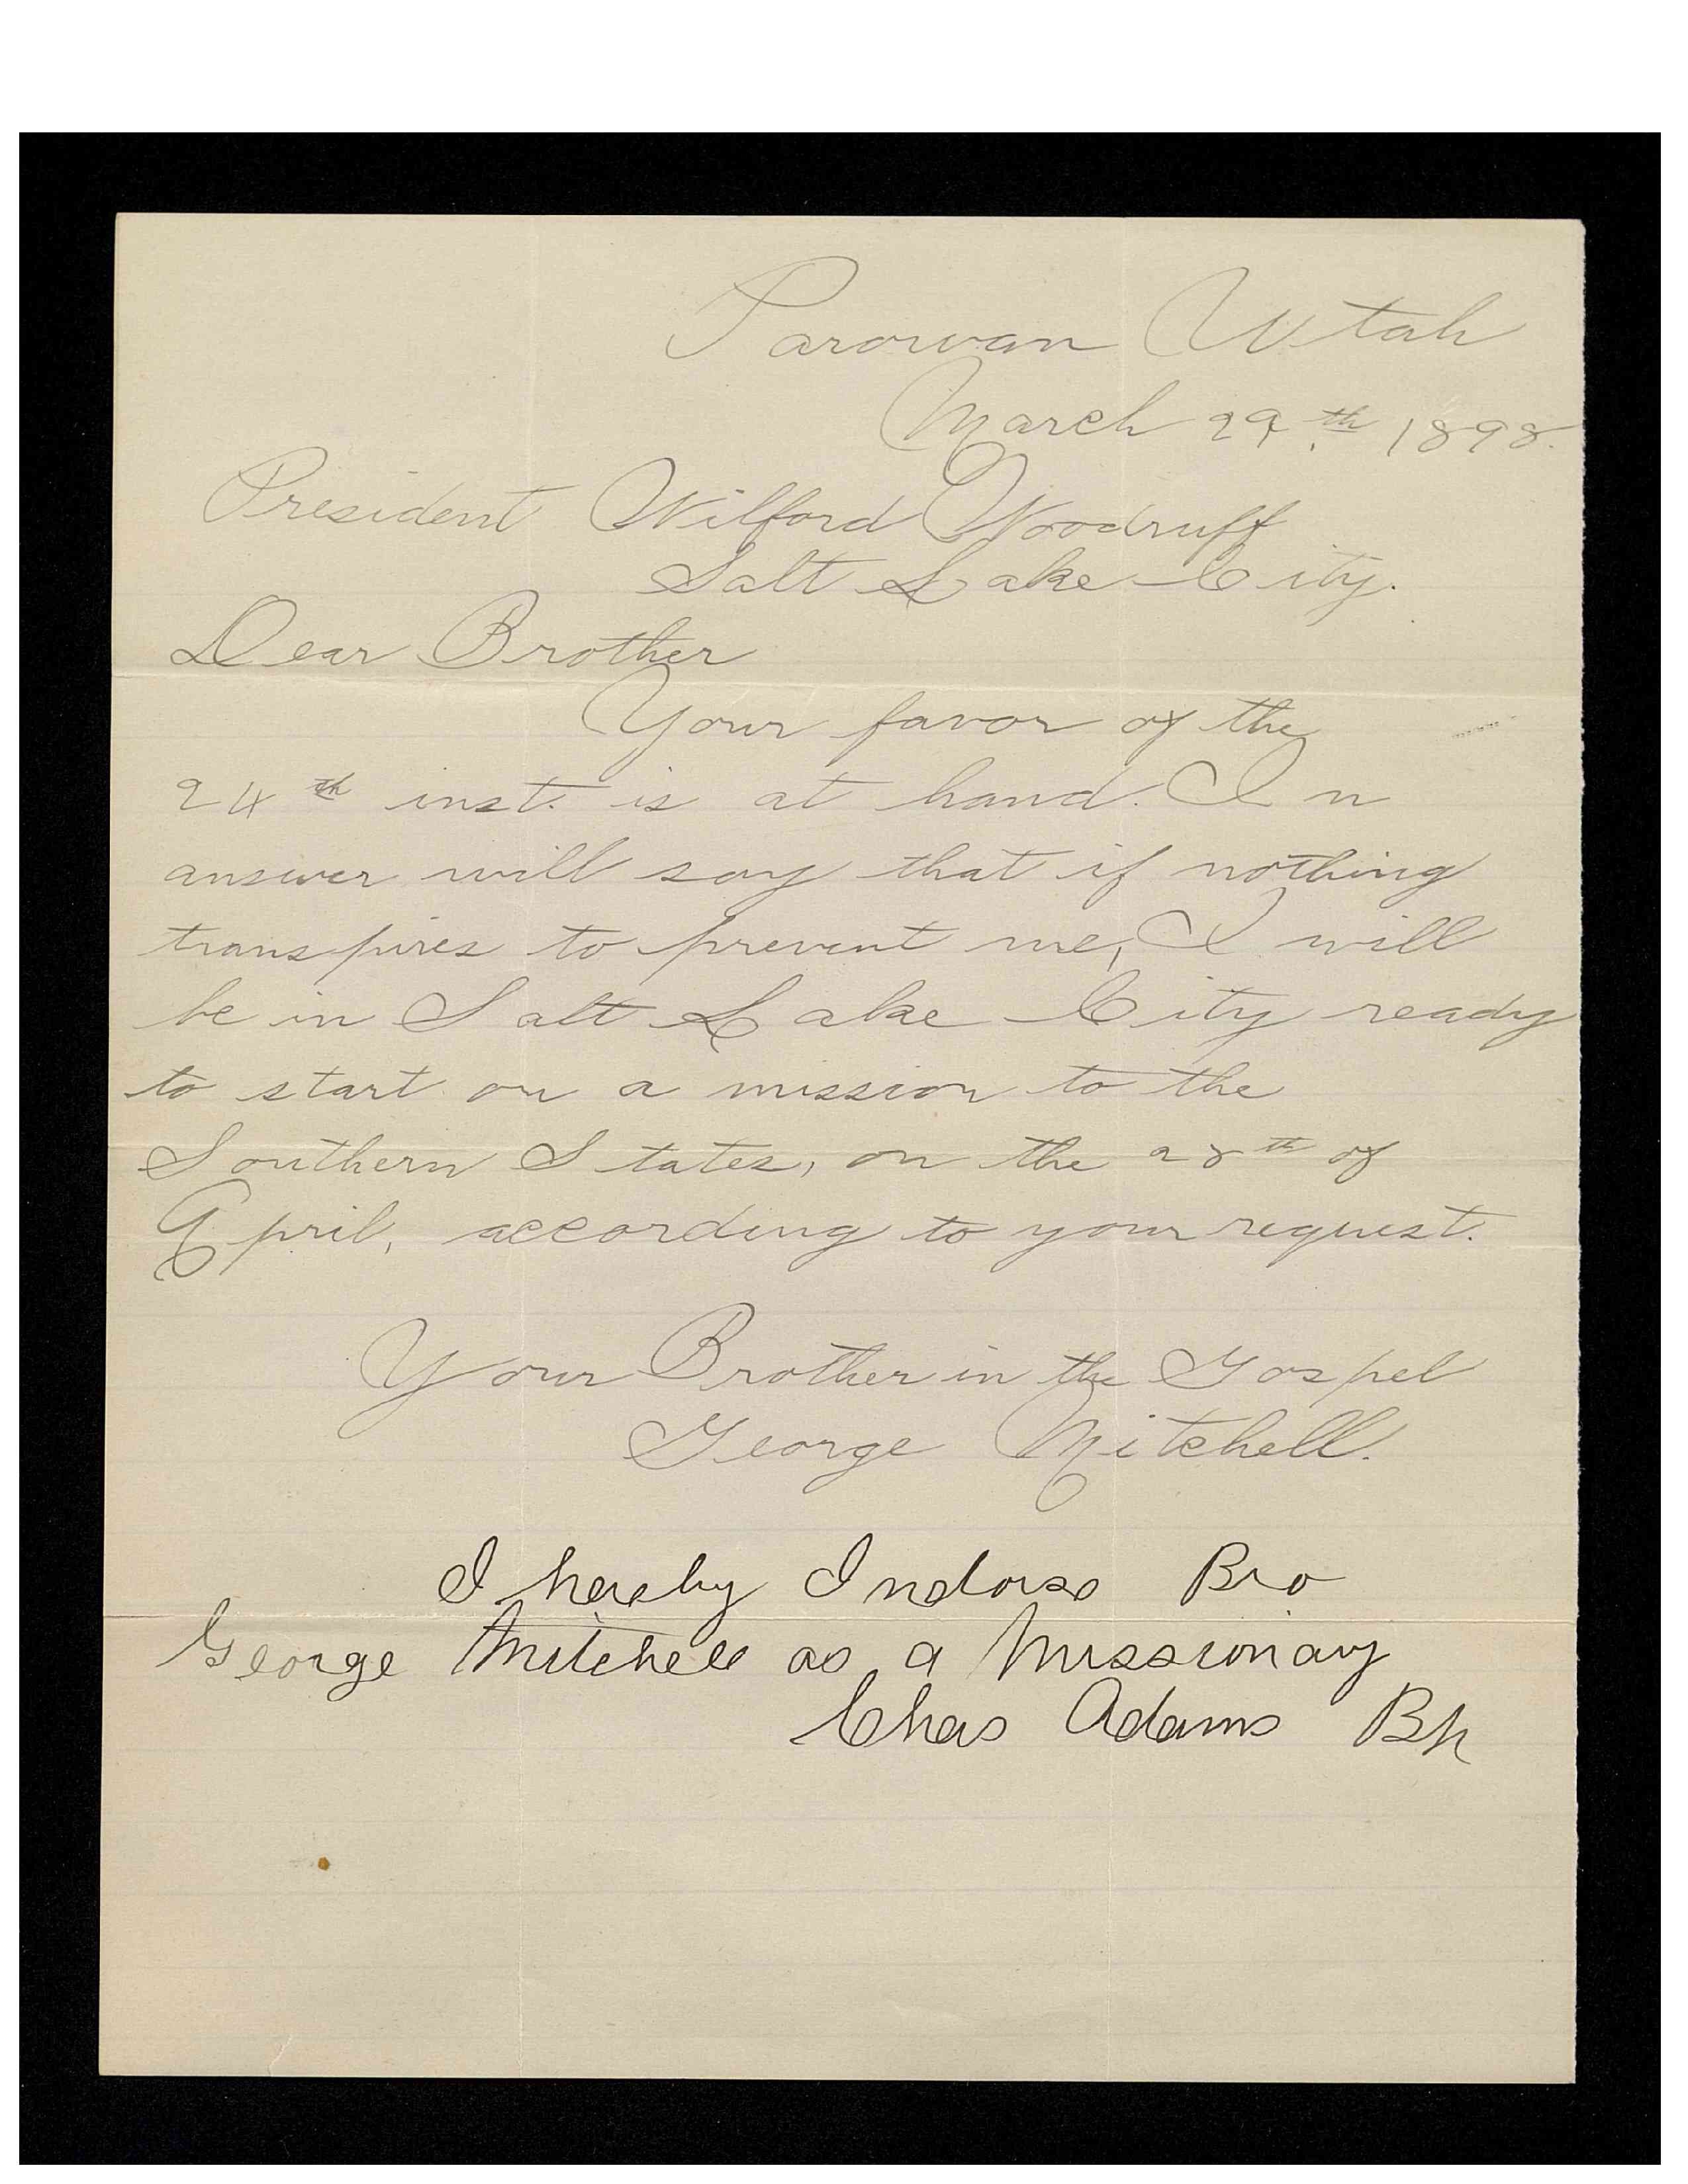 Parowan Utah
March 29th 1898.
President Wilford Woodruff
Salt Lake City.
Dear Brother
Your favor of the
24th inst. is at hand. In
answer will say that if nothing
transpires to prevent me, I will
be in Salt Lake City ready
to start on a mission to the
Southern States, on the 28th of
April, according to your request.
Your Brother in the Gospel
George Mitchell.
I hereby Indorse Bro
George Mitchell as a Missionary
Chas Adams Bp